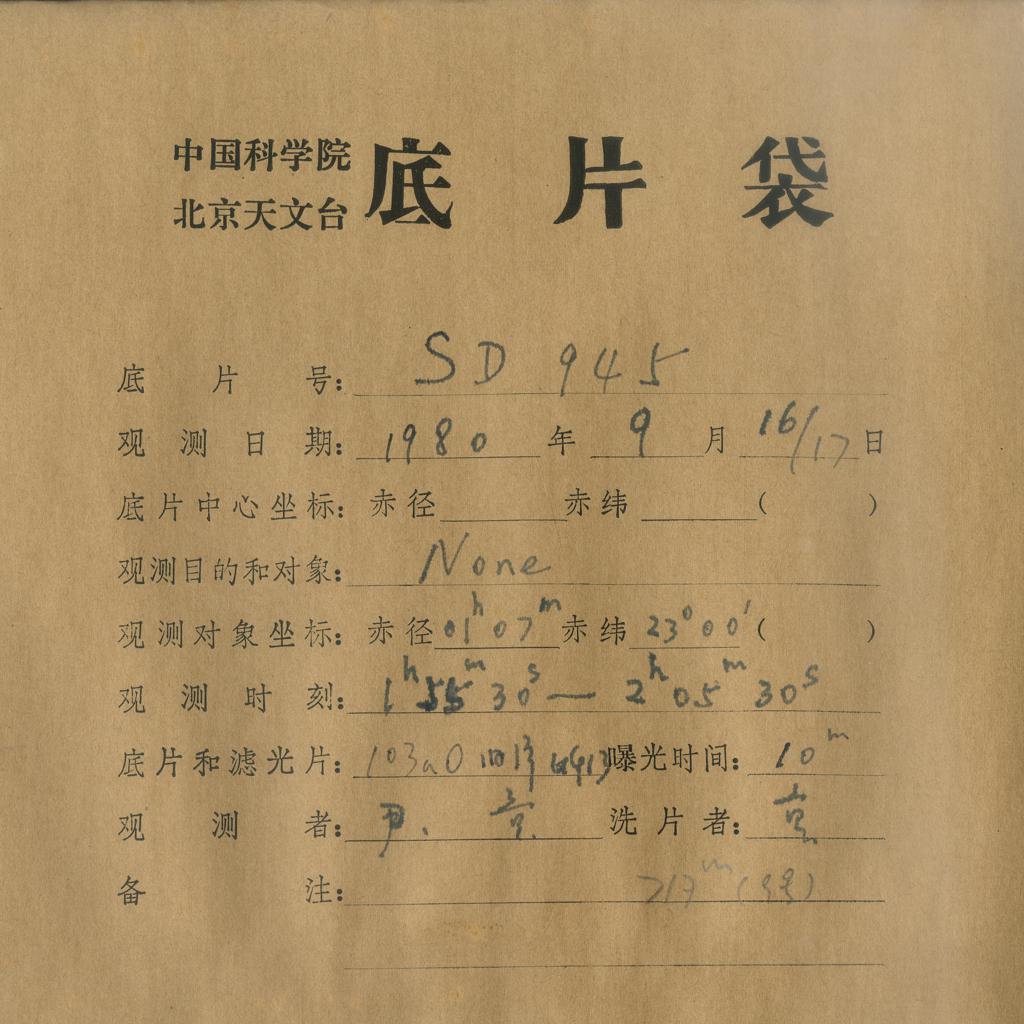 中国科学院
北京天文台
底片袋
底片号: SD 945
观测日期: 1980年9月16/17日
底片中心坐标: 赤径 赤纬 ( )
观测目的和对象: None
观测对象坐标: 赤径 01h07m 赤纬 23°00′ ( )
观测时刻: 1h55m30s — 2h05m30s
底片和滤光片: 103aO 曝光时间: 10m
观测者: 尹. 洗片者:
备注: